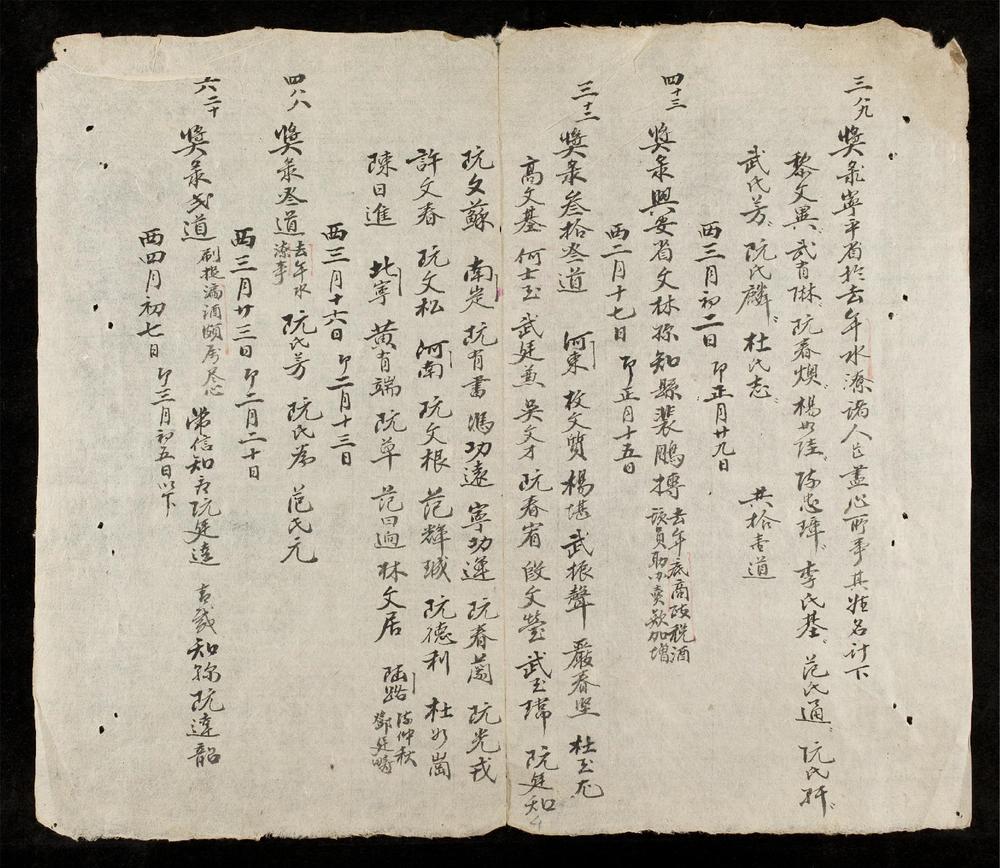 三八九 獎彔寧平省於去年水潦諸人民盡心所事其姓名計下
黎文異 武有琳 阮春煥 楊如陸 陳忠瑋 李氏基 范氏通 阮氏
武氏芳 阮氏麟 杜氏志 共拾壹道
西三月初二日 卽正月廿九日
四十三 獎彔興安省文林知縣裴鵬摶
去年底商政稅酒
該員助辦賣欵加增
西二月十七日 卽正月十五日
三十三 獎彔叁拾叁道 河東 枚文質 楊堪 武振聲 嚴春堅 杜玉
高文基 何士玉 武廷兼 吳文才 阮春宥 段文瑩 武玉瑞 阮廷知
阮文蘇 南定 阮有書 馮功遠 寧功運 阮春蘭 阮光戎
許文春 阮文私 河南 阮文根 范輝珹 阮德利 杜如崗
陳日進 北寧 黃有端 阮草 范曰迥 林文居 陸路
陳仲秋
鄧廷疇
西三月十六日 卽二月十三日
四八八 獎彔叁道
去年水
潦事
阮氏芳 阮氏為 范氏元
西三月廿三日 卽二月二十日
六二十 獎彔弍道
刷捉漏酒頗屬尽心
常信知府阮廷達 知縣阮達韶
西四月初七日 卽三月初五日以下